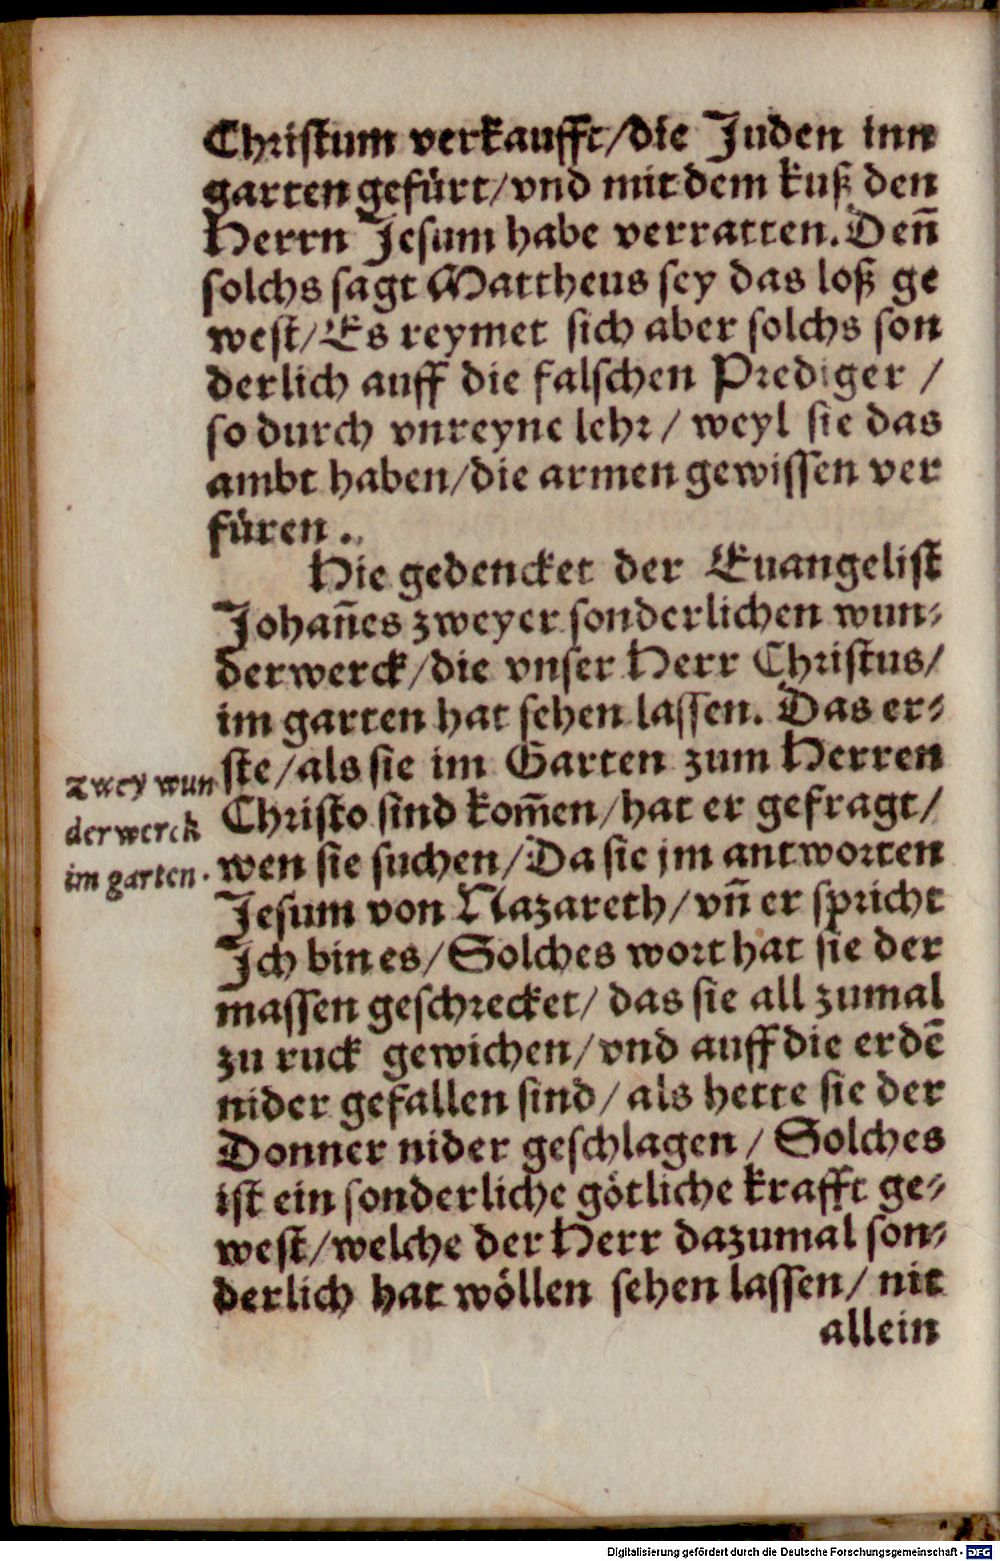 Christum verkaufft/die Juden inn
garten gefürt/vnd mit dem kuß den
Herrn Jesum habe verratten. Deñ
solchs sagt Mattheus sey das loß ge
west/Es reymet sich aber solchs son
derlich auff die falschen Prediger /
so durch vnreyne lehr / weyl sie das
ambt haben/die armen gewissen ver
füren.
Hie gedencket der Euangelist
Johañes zweyer sonderlichen wun-
derwerck/die vnser Herr Christus/
im garten hat sehen lassen. Das er-
ste/als sie im Garten zum Herren
Christo sind kom̃en/hat er gefragt/
wen sie suchen/Da sie jm antworten
Jesum von Nazareth/vñ er spricht
Ich bin es/Solches wort hat sie der
massen geschrecket/ das sie all zumal
zu ruck gewichen/vnd auff die erdē
nider gefallen sind/ als hette sie der
Donner nider geschlagen / Solches
ist ein sonderliche götliche krafft ge-
west/welche der Herr dazumal son-
derlich hat wöllen sehen lassen/ nit
allein
zwey wun
derwerck
im garten.
Digitalisierung gefördert durch die Deutsche Forschungsgemeinschaft - DFG